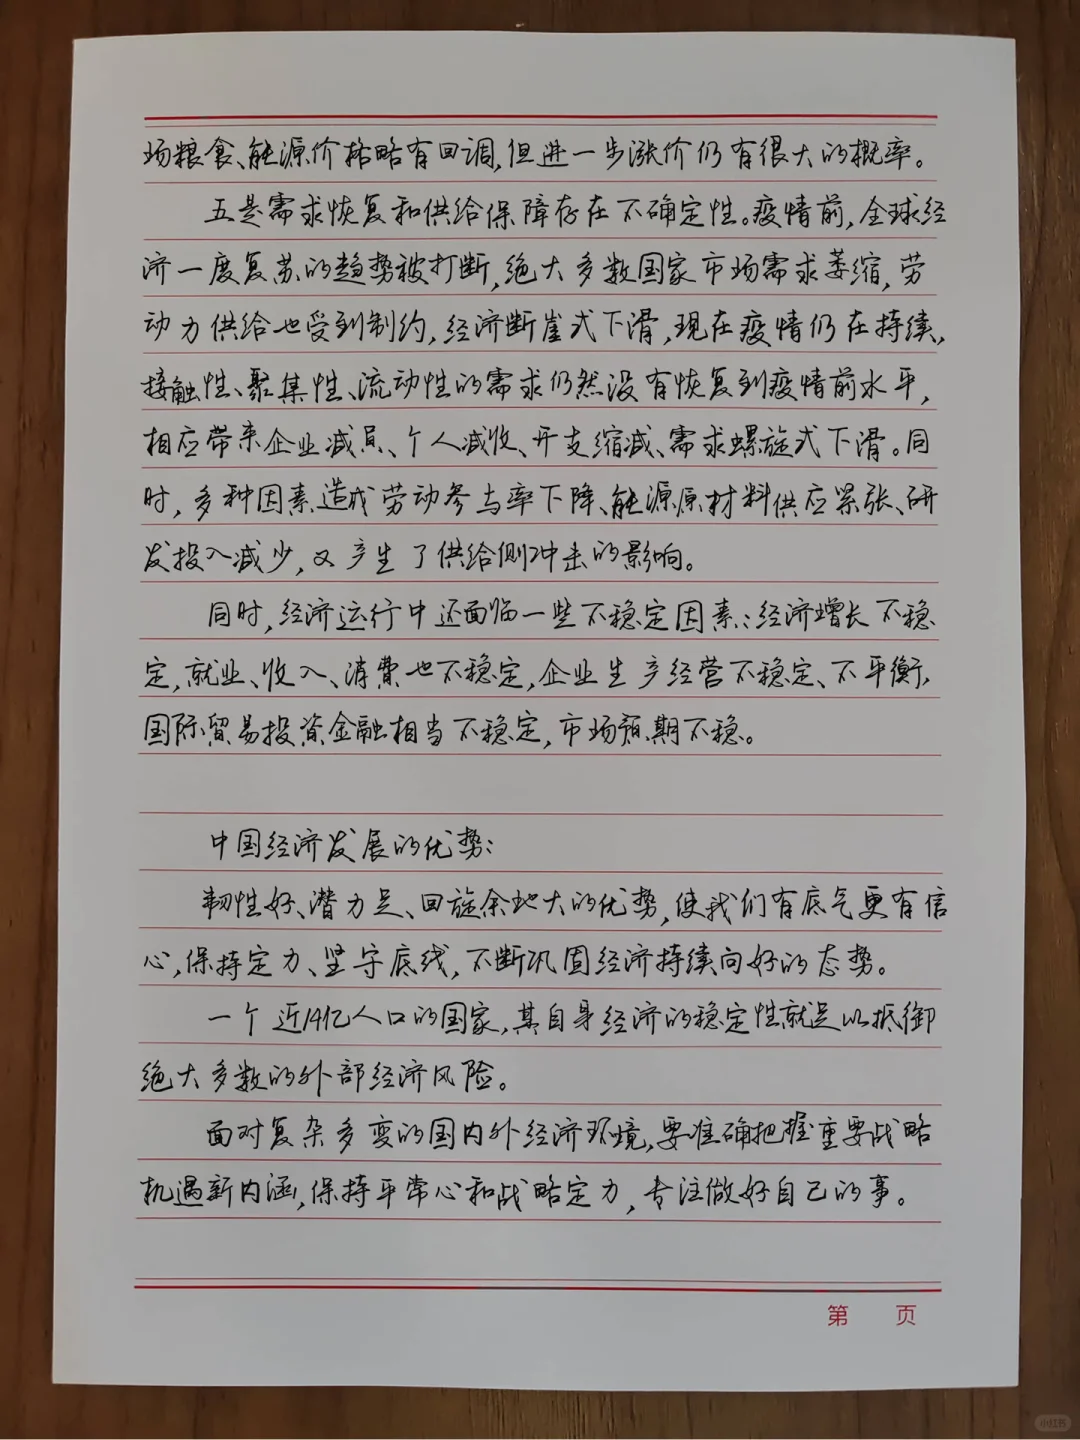 场粮食、能源价格略有回调,但进一步涨价仍有很大的概率。
五是需求恢复和供给保障存在不确定性。疫情前,全球经
济一度复苏的趋势被打断,绝大多数国家市场需求萎缩,劳
动力供给也受到制约,经济断崖式下滑,现在疫情仍在持续,
接触性、聚集性、流动性的需求仍然没有恢复到疫情前水平,
相应带来企业减员、个人减收、开支缩减、需求螺旋式下滑。同
时,多种因素造成劳动参与率下降、能源原材料供应紧张、研
发投入减少,又产生了供给侧冲击的影响。
同时,经济运行中还面临一些不稳定因素:经济增长不稳
定,就业、收入、消费也不稳定,企业生产经营不稳定、不平衡,
国际贸易投资金融相当不稳定,市场预期不稳。
中国经济发展的优势:
韧性好、潜力足、回旋余地大的优势,使我们有底气更有信
心,保持定力、坚守底线,不断巩固经济持续向好的态势。
一个近14亿人口的国家,其自身经济的稳定性就足以抵御
绝大多数的外部经济风险。
面对复杂多变的国内外经济环境,要准确把握重要战略
机遇新内涵,保持平常心和战略定力,专注做好自己的事。
第 页
小红书